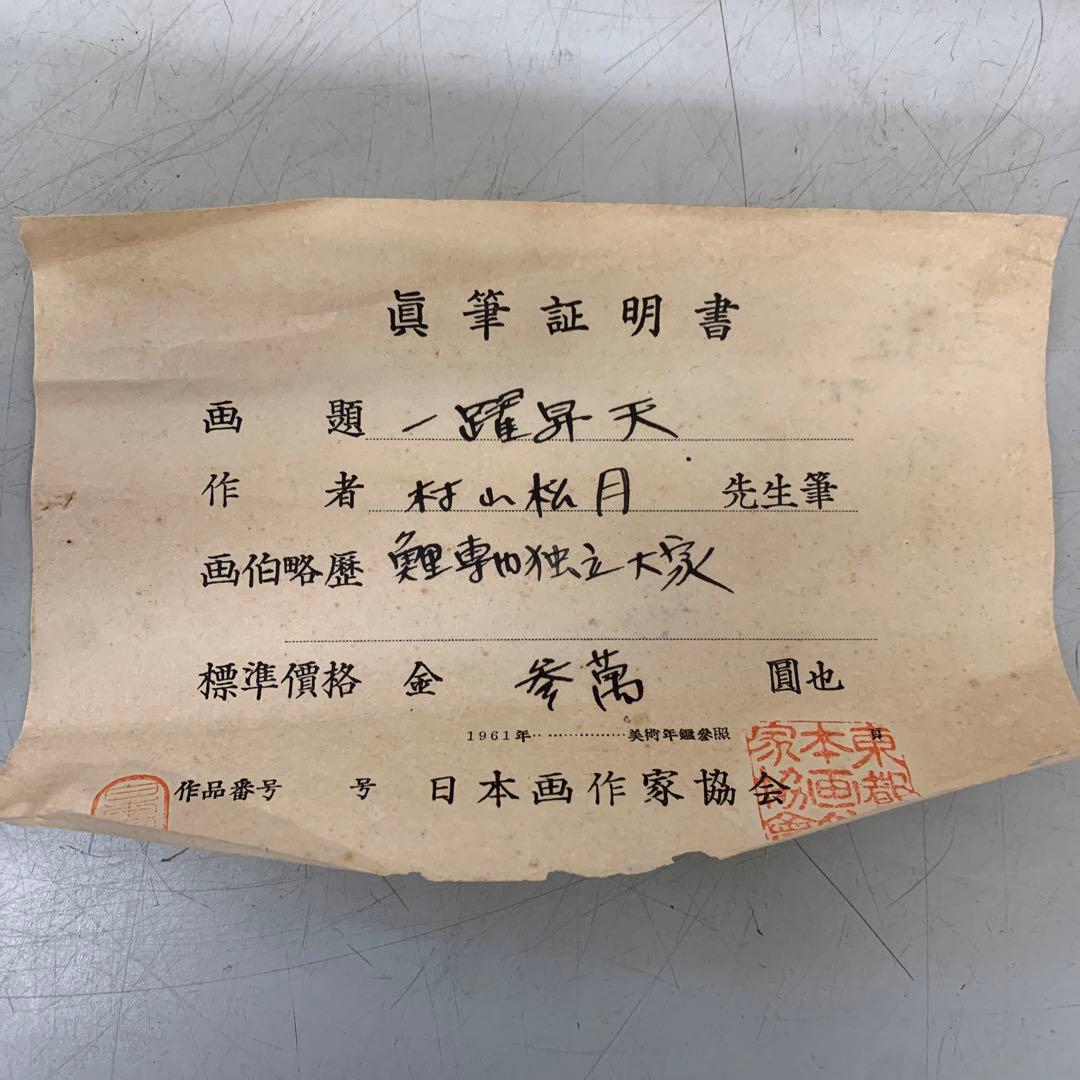 眞筆証明書
画題 一躍昇天
作者 村山松月 先生筆
画伯略歴 鯉専内独立大家
標準價格 金 参萬 圓也
1961年……………美術年鑑參照 頁
作品番号 号 日本画作家協会
東都
本画
家協會